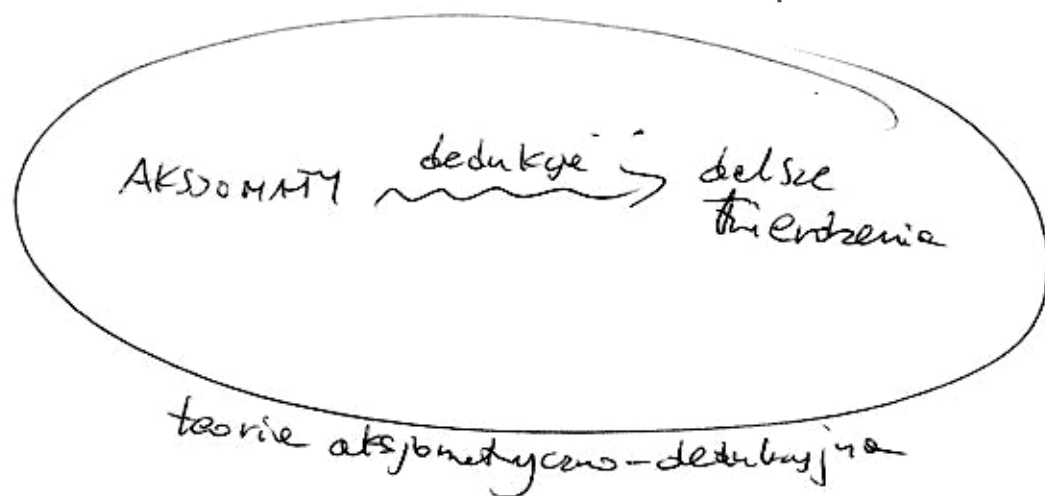 AKSJOMATY dedukcje dalsze
twierdzenia
teoria aksjomatyczno-dedukcyjna